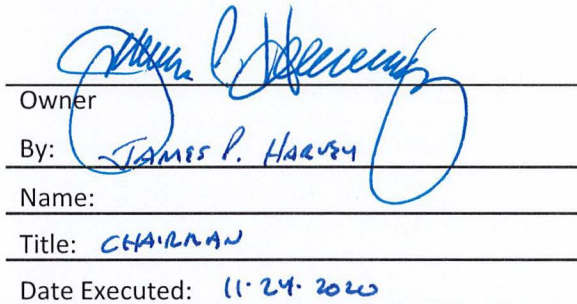 Owner
By: JAMES P. HARVEY
Name:
Title: CHAIRMAN
Date Executed: 11.24.2020